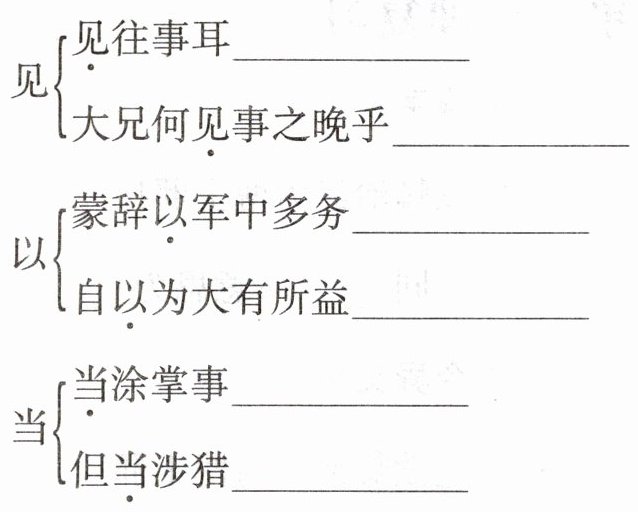 见
见往事耳
大兄何见事之晚乎
以
蒙辞以军中多务
自以为大有所益
当
当涂掌事
但当涉猎